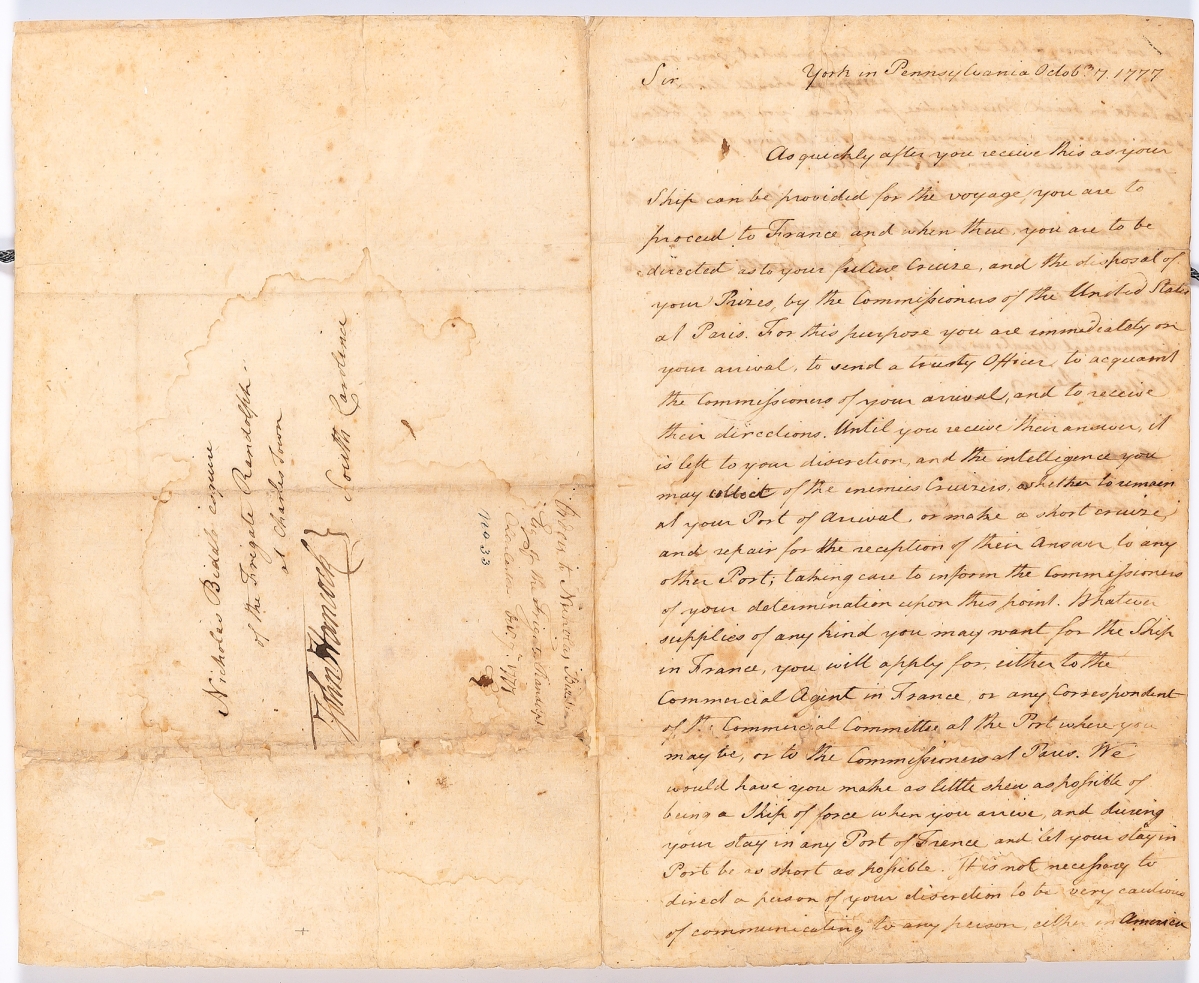 Nicholas Biddle esquire
of the Frigate Randolph
at Charles Town
South Carolina
No 33
Sir, York in Pennsylvania Octobr 7. 1777
As quickly after you receive this as your
Ship can be provided for the voyage, you are to
proceed to France and when there you are to be
directed as to your future Cruize, and the disposal of
your Prizes, by the Commissioners of the United States
at Paris. For this purpose you are immediately on
your arrival, to send a trusty Officer to acquaint
the Commissioners of your arrival, and to receive
their directions. Until you receive their answer, it
is left to your discretion, and the intelligence you
may collect of the enemies Cruizers, whether to remain
at your Port of Arrival, or make a short cruize,
and repair for the reception of their Answer to any
other Port; taking care to inform the Commissioners
of your determination upon this point. Whatever
supplies of any kind you may want for the Ship
in France, you will apply for, either to the
Commercial Agent in France or any Correspondent
of ye Commercial Committee at the Port where you
may be, or to the Commissioners at Paris. We
would have you make as little shew as possible of
being a Ship of force when you arrive, and during
your stay in any Port of France and let your stay in
Port be as short as possible. It is not necessary to
direct a person of your discretion to be very cautious
of communicating to any person, either in America